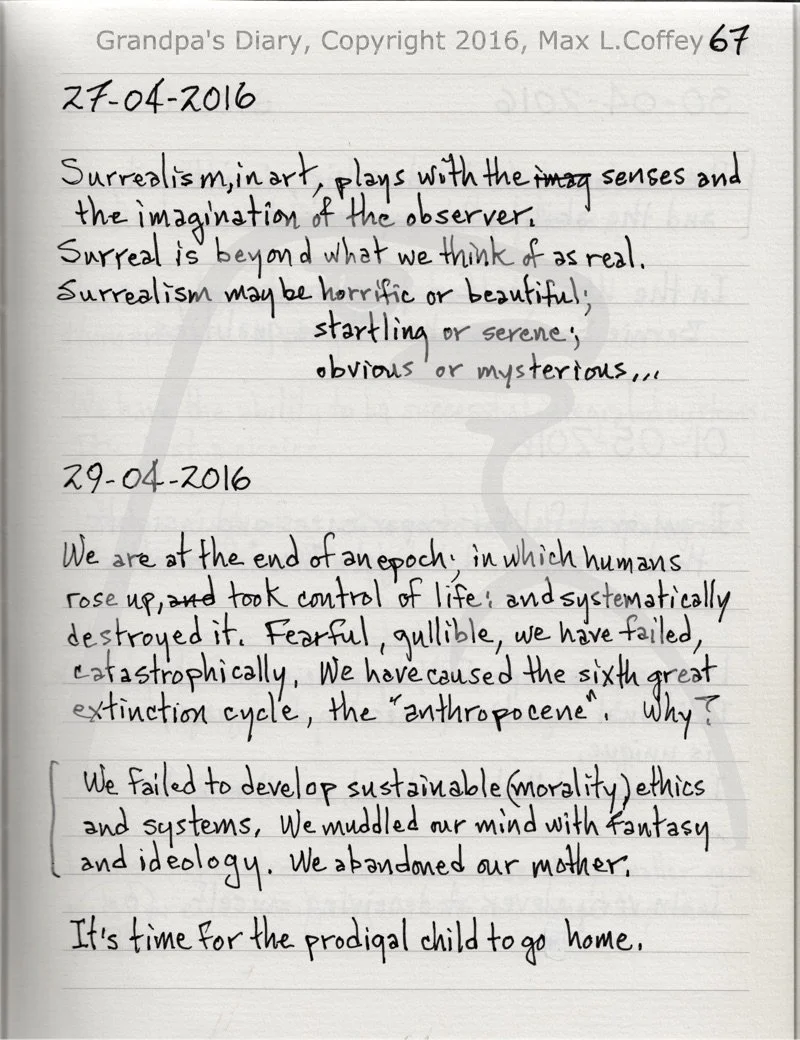 Grandpa's Diary, Copyright 2016, Max L.Coffey 67
27-04-2016
Surrealism, in art, plays with the imag senses and
the imagination of the observer.
Surreal is beyond what we think of as real.
Surrealism may be horrific or beautiful;
startling or serene;
obvious or mysterious...
29-04-2016
We are at the end of an epoch; in which humans
rose up, and took control of life: and systematically
destroyed it. Fearful, gullible, we have failed,
catastrophically. We have caused the sixth great
extinction cycle, the "anthropocene". Why?
We failed to develop sustainable (morality) ethics
and systems. We muddled our mind with fantasy
and ideology. We abandoned our mother.
It's time for the prodigal child to go home.